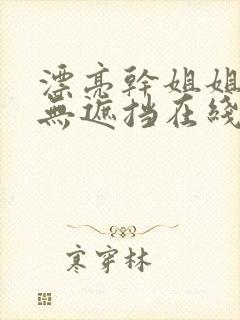 漂亮幹姐姐
無遮挡在綫
寒穿林